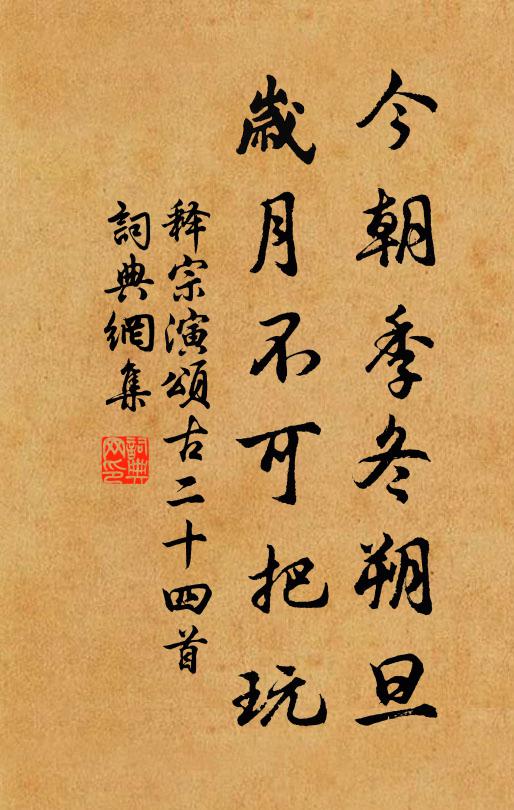 今朝季冬朔旦
歲月不可把玩
释宗演頌古二十四首
詞典網集
詞典
网印